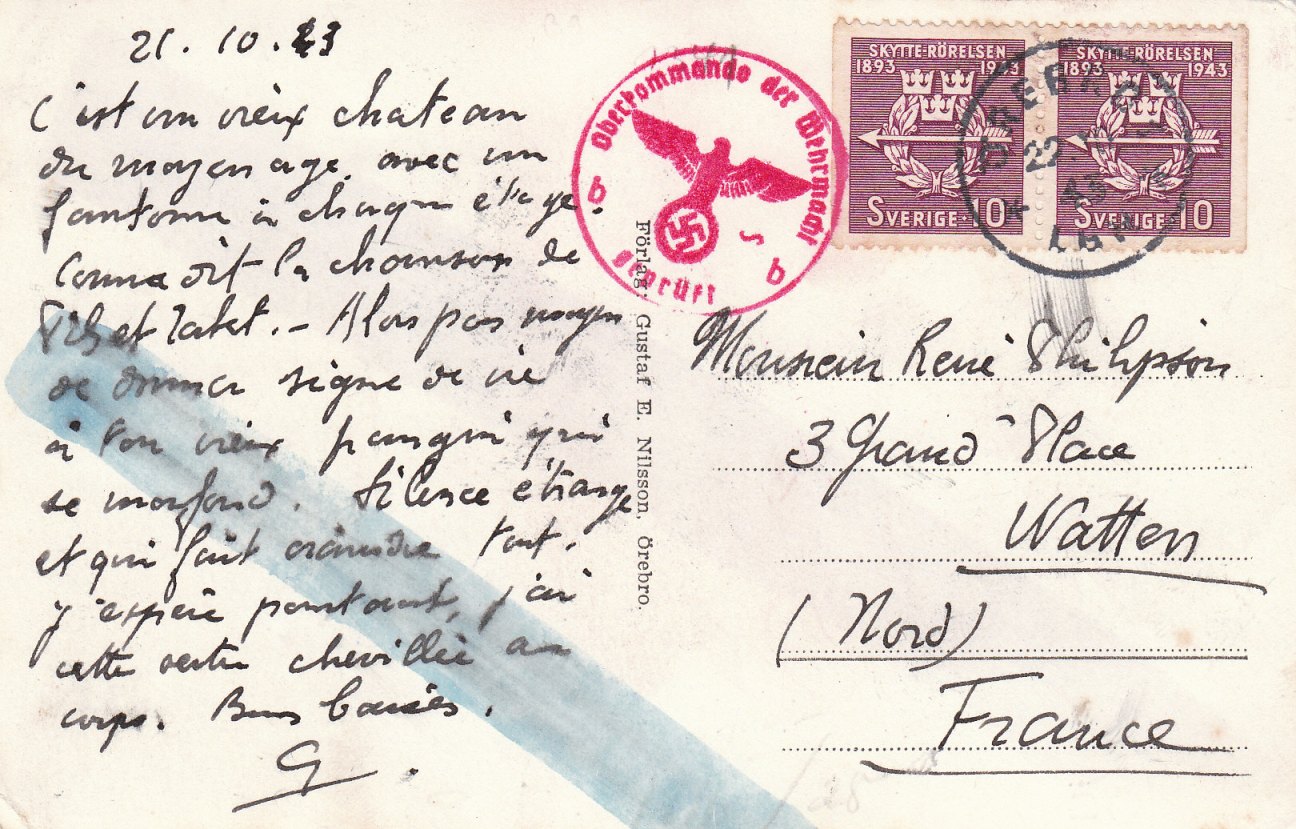 21.10.43
C'est un vieux chateau
du moyen age avec un
fantome à chaque étage.
Comme dit la chanson de
Pils et Tabet. - Alors pas moyen
de donner signe de vie
à ton vieux qui
se morfond. Silence étrange
et qui fait craindre tout.
J'espère pourtant, j'ai
cette vertu chevillée au
corps. Bons baisers.
G.
Förlag: Gustaf E. Nilsson, Örebro.
Oberkommando der Wehrmacht
b b
geprüft
SKYTTE-RÖRELSEN
1893 1943
SVERIGE 10
SKYTTE-RÖRELSEN
1893 1943
SVERIGE 10
ÖREBRO
22.
43
LBR
Monsieur René Philipson
3 Grand Place
Watten
(Nord)
France